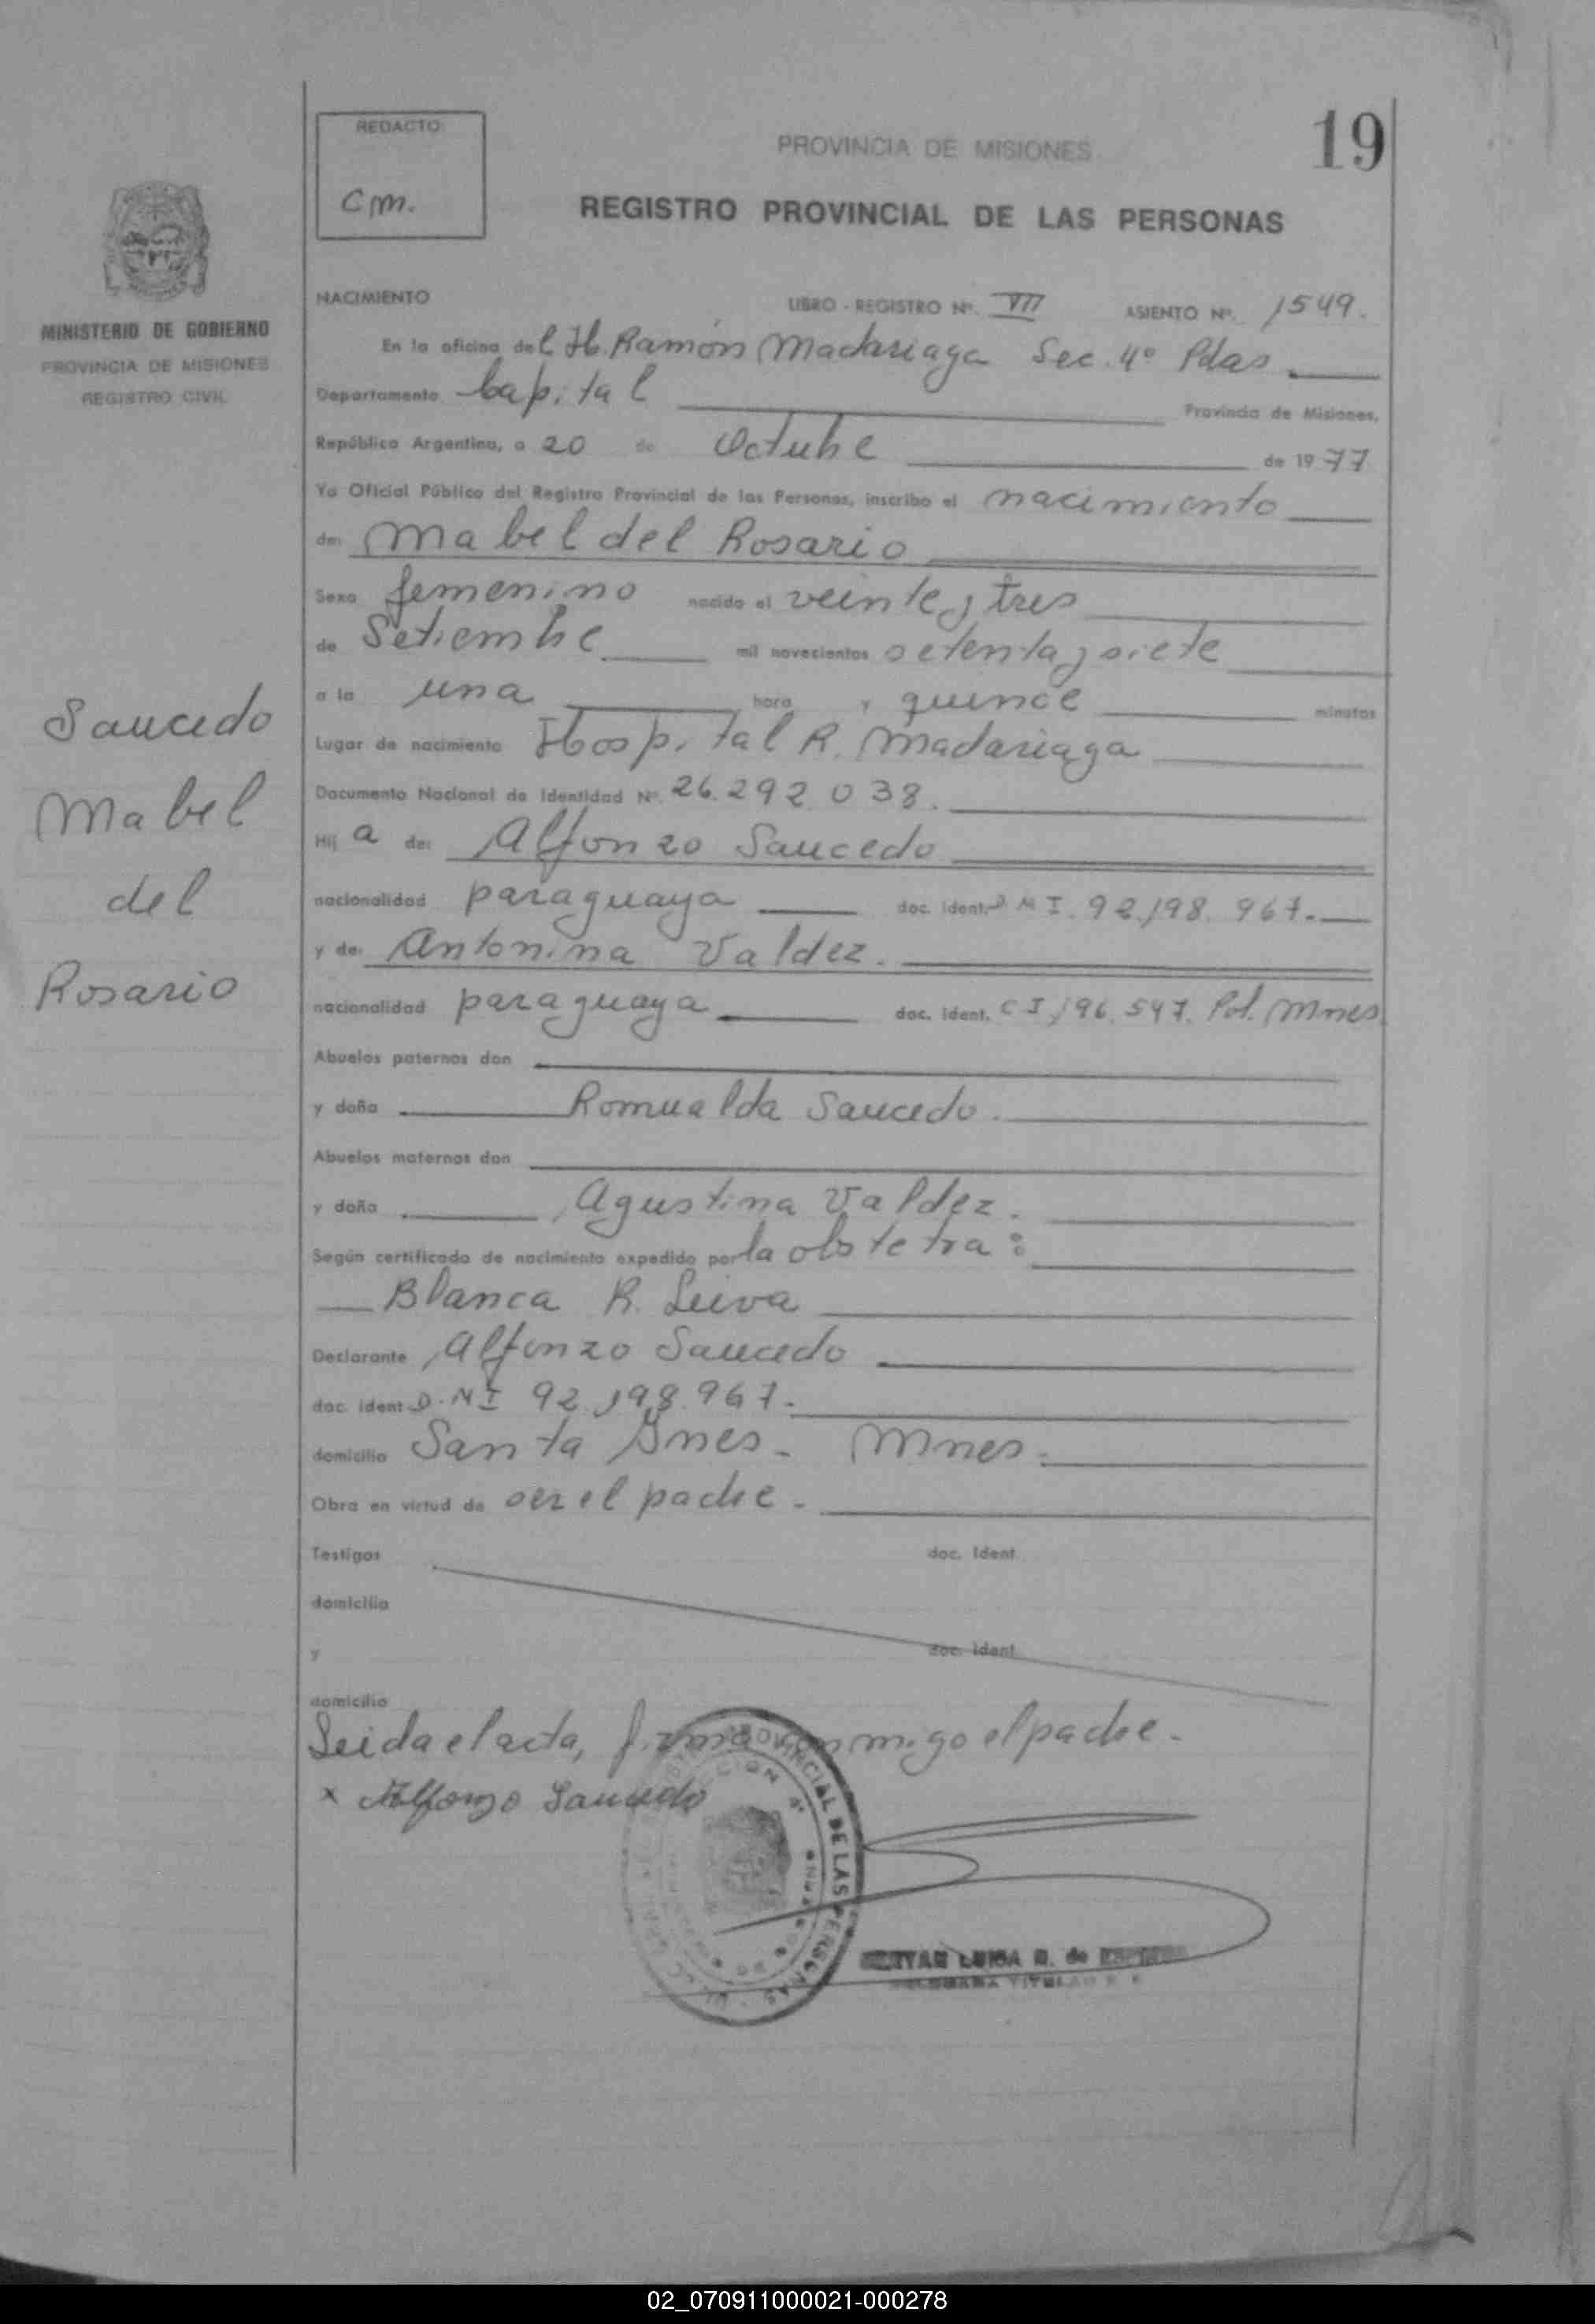 REDACTO:
Cm.
PROVINCIA DE MISIONES
19
REGISTRO PROVINCIAL DE LAS PERSONAS
MINISTERIO DE GOBIERNO
PROVINCIA DE MISIONES
REGISTRO CIVIL
NACIMIENTO LIBRO - REGISTRO Nº. VII ASIENTO Nº. 1549.
En la oficina del H. Ramón Madariaga Sec. 4º Pdas.
Departamento Capital Provincia de Misiones,
República Argentina, a 20 de Octubre de 1977
Yo Oficial Público del Registro Provincial de las Personas, inscribo el nacimiento
de: Mabel del Rosario
Sexo femenino nacido el veinte y tres
de Setiembre mil novecientos setenta y siete
a la una hora y quince minutos
Lugar de nacimiento Hospital R. Madariaga
Documento Nacional de Identidad Nº. 26.292.038.
Hij a de: Alfonzo Saucedo
nacionalidad paraguaya doc. ident. D N I. 92.198.967.
y de: Antonina Valdez.
nacionalidad paraguaya doc. ident. C I 196.547. Pol. Mnes
Abuelos paternos don
y doña Romualda Saucedo.
Abuelos maternos don
y doña Agustina Valdez.
Según certificado de nacimiento expedido por la obstetra:
Blanca R. Leiva
Declarante Alfonzo Saucedo
doc. ident D. N I 92.198.967.
domicilio Santa Ines - Mnes.
Obra en virtud de ser el padre.
Testigos doc. Ident.
domicilio
y doc. Ident.
domicilio
Leida el acta, firma conmigo el padre.
x Alfonzo Saucedo
Saucedo
Mabel
del
Rosario
PROVINCIAL DE LAS PERSONAS
LUISA de
02_070911000021-000278